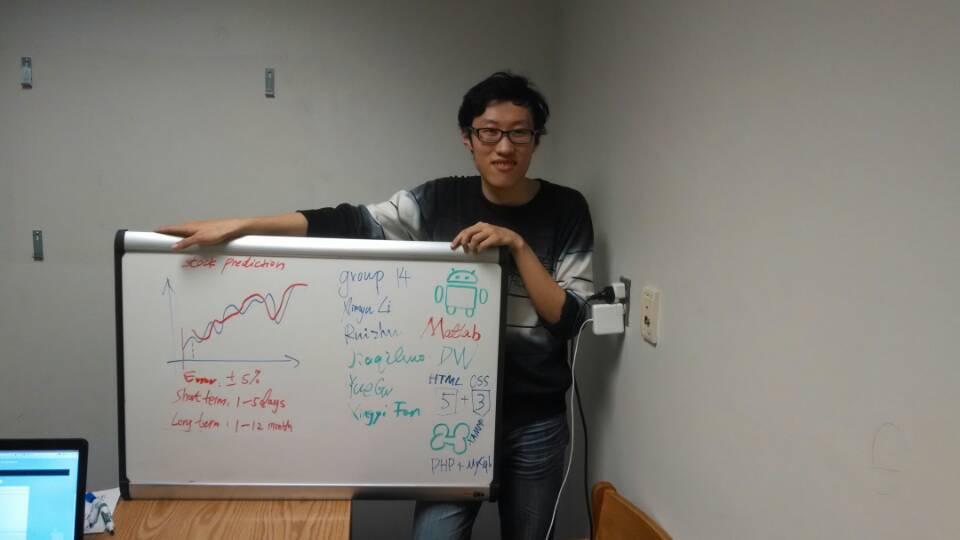 stock prediction
Error: ± 5%
Short term: 1-5 days
Long term: 1-12 month
group 14
Xingyu Li
Ruizhu
Jiaqi Luo
Yue Gu
Xingyi Fan
Matlab
DW
HTML CSS
5 + 3
XAMPP
PHP + MySql